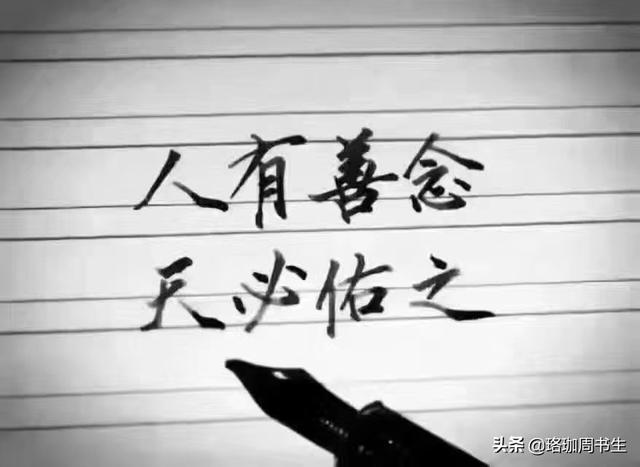 人有善念
天必佑之
头条 @珞珈周书生